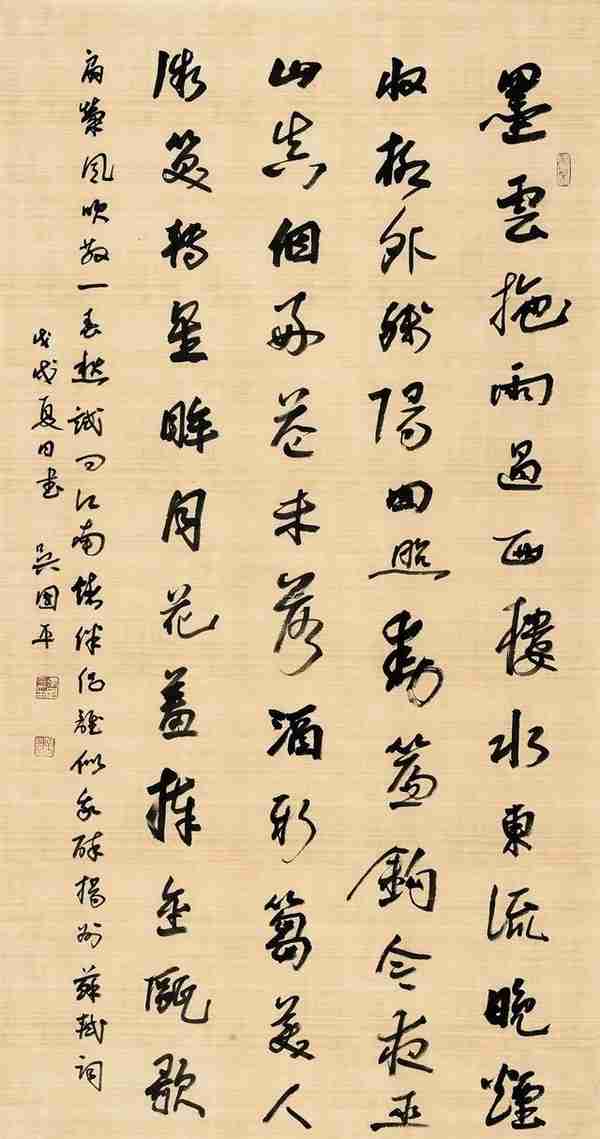 墨雲拖雨過西樓水東流晚煙
收柳外殘陽回照動簾鉤今夜巫
山真個好花未落酒新篘美人
微笑轉星眸月花羞捧金甌歌
扇縈風吹散一春愁試問江南諸伴侶誰似我醉揚州蘇軾詞
戊戌夏日書 吳國平